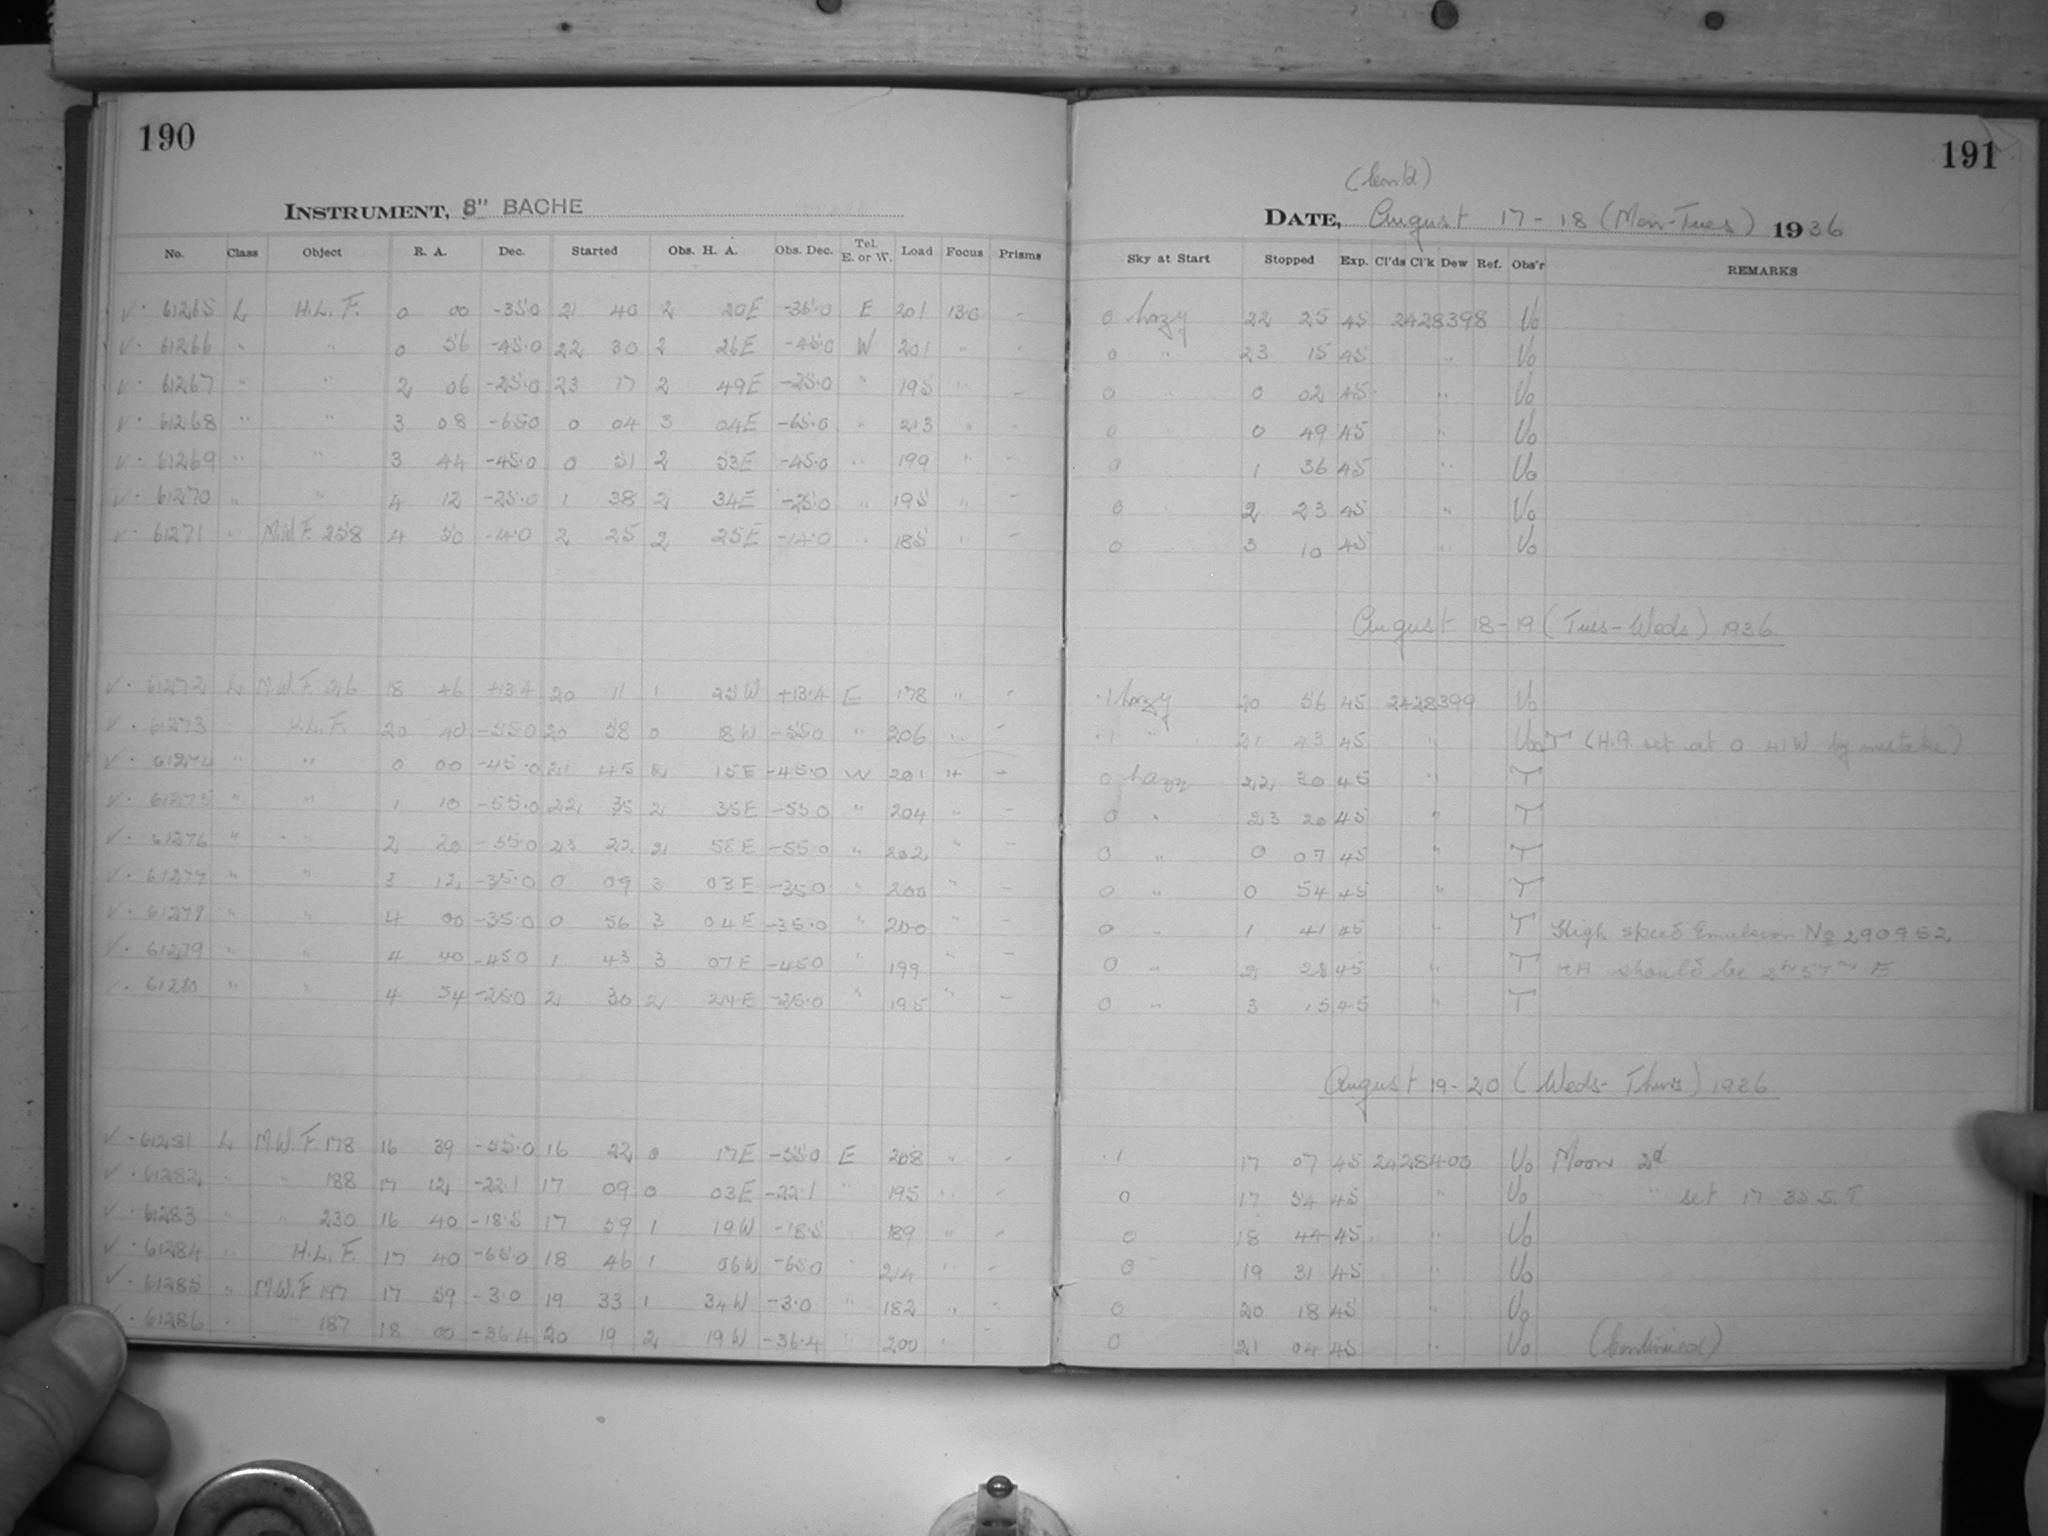 190
INSTRUMENT, 8" BACHE
No. Class Object R. A. Dec. Started Obs. H. A. Obs. Dec. Tel. E. or W. Load Focus Prisms
✓ · 61265 L H.L.F. 0 00 -35.0 21 40 2 20E -35.0 E 201 13.0 -
✓ · 61266 " " 0 56 -45.0 22 30 2 26E -45.0 W 201 " -
✓ · 61267 " " 2 06 -25.0 23 17 2 49E -25.0 " 195 " -
✓ · 61268 " " 3 08 -65.0 0 04 3 04E -65.0 " 213 " -
✓ · 61269 " " 3 44 -45.0 0 51 2 53E -45.0 " 199 " -
✓ · 61270 " " 4 12 -25.0 1 38 2 34E -25.0 " 195 " -
✓ · 61271 " M.W.F. 258 4 50 -14.0 2 25 2 25E -14.0 " 185 " -
✓ · 61272 L M.W.F. 26 18 46 +13.4 20 11 1 25W +13.4 E 178 " -
✓ · 61273 H.L.F. 20 40 -55.0 20 58 0 18W -55.0 " 206 " -
✓ · 61274 " " 0 00 -45.0 21 45 2 15E -45.0 W 201 " -
✓ · 61275 " " 1 10 -55.0 22 35 2 35E -55.0 " 204 " -
✓ · 61276 " " 2 20 -55.0 23 22 2 58E -55.0 " 202 " -
✓ · 61277 " " 3 12 -35.0 0 09 3 03E -35.0 " 200 " -
✓ · 61278 " " 4 00 -35.0 0 56 3 04E -35.0 " 200 " -
✓ · 61279 " " 4 40 -45.0 1 43 3 07E -45.0 " 199 " -
✓ · 61280 " " 4 54 -25.0 2 30 2 24E -25.0 " 195 " -
✓ · 61281 L M.W.F. 178 16 39 -55.0 16 22 0 17E -55.0 E 208 " -
✓ · 61282 " " 188 17 12 -22.1 17 09 0 03E -22.1 " 195 " -
✓ · 61283 " " 230 16 40 -18.5 17 59 1 19W -18.5 " 189 " -
✓ · 61284 " H.L.F. 17 40 -65.0 18 46 1 06W -65.0 " 214 " -
✓ · 61285 " M.W.F. 197 17 59 -3.0 19 33 1 34W -3.0 " 182 " -
✓ · 61286 " " 187 18 00 -36.4 20 19 2 19W -36.4 " 200 " -
191
(Cont'd)
DATE, August 17-18 (Mon-Tues) 1936
Sky at Start Stopped Exp. Cl'ds Cl'k Dew Ref. Obs'r REMARKS
0 hazy 22 25 45 2428398 Uo
0 " 23 15 45 " Uo
0 " 0 02 45 " Uo
0 " 0 49 45 " Uo
0 " 1 36 45 " Uo
0 " 2 23 45 " Uo
0 " 3 10 45 " Uo
August 18-19 (Tues-Weds) 1936.
.1 hazy 20 56 45 2428399 Uo
.1 " 21 43 45 " Uo T (H.A. set at 0. 41W by mistake)
0 hazy 22 30 45 " T
0 " 23 20 45 " T
0 " 0 07 45 " T
0 " 0 54 45 " T
0 " 1 41 45 " T High speed Emulsion No 290952
0 " 2 28 45 " T HA should be 2ʰ57ᵐ E
0 " 3 15 45 " T
August 19-20 (Weds-Thurs) 1936
.1 17 07 45 2428400 Uo Moon 2d
0 17 54 45 " Uo " " set 17 35 S.T
0 18 44 45 " Uo
0 19 31 45 " Uo
0 20 18 45 " Uo
0 21 04 45 " Uo (Continued)